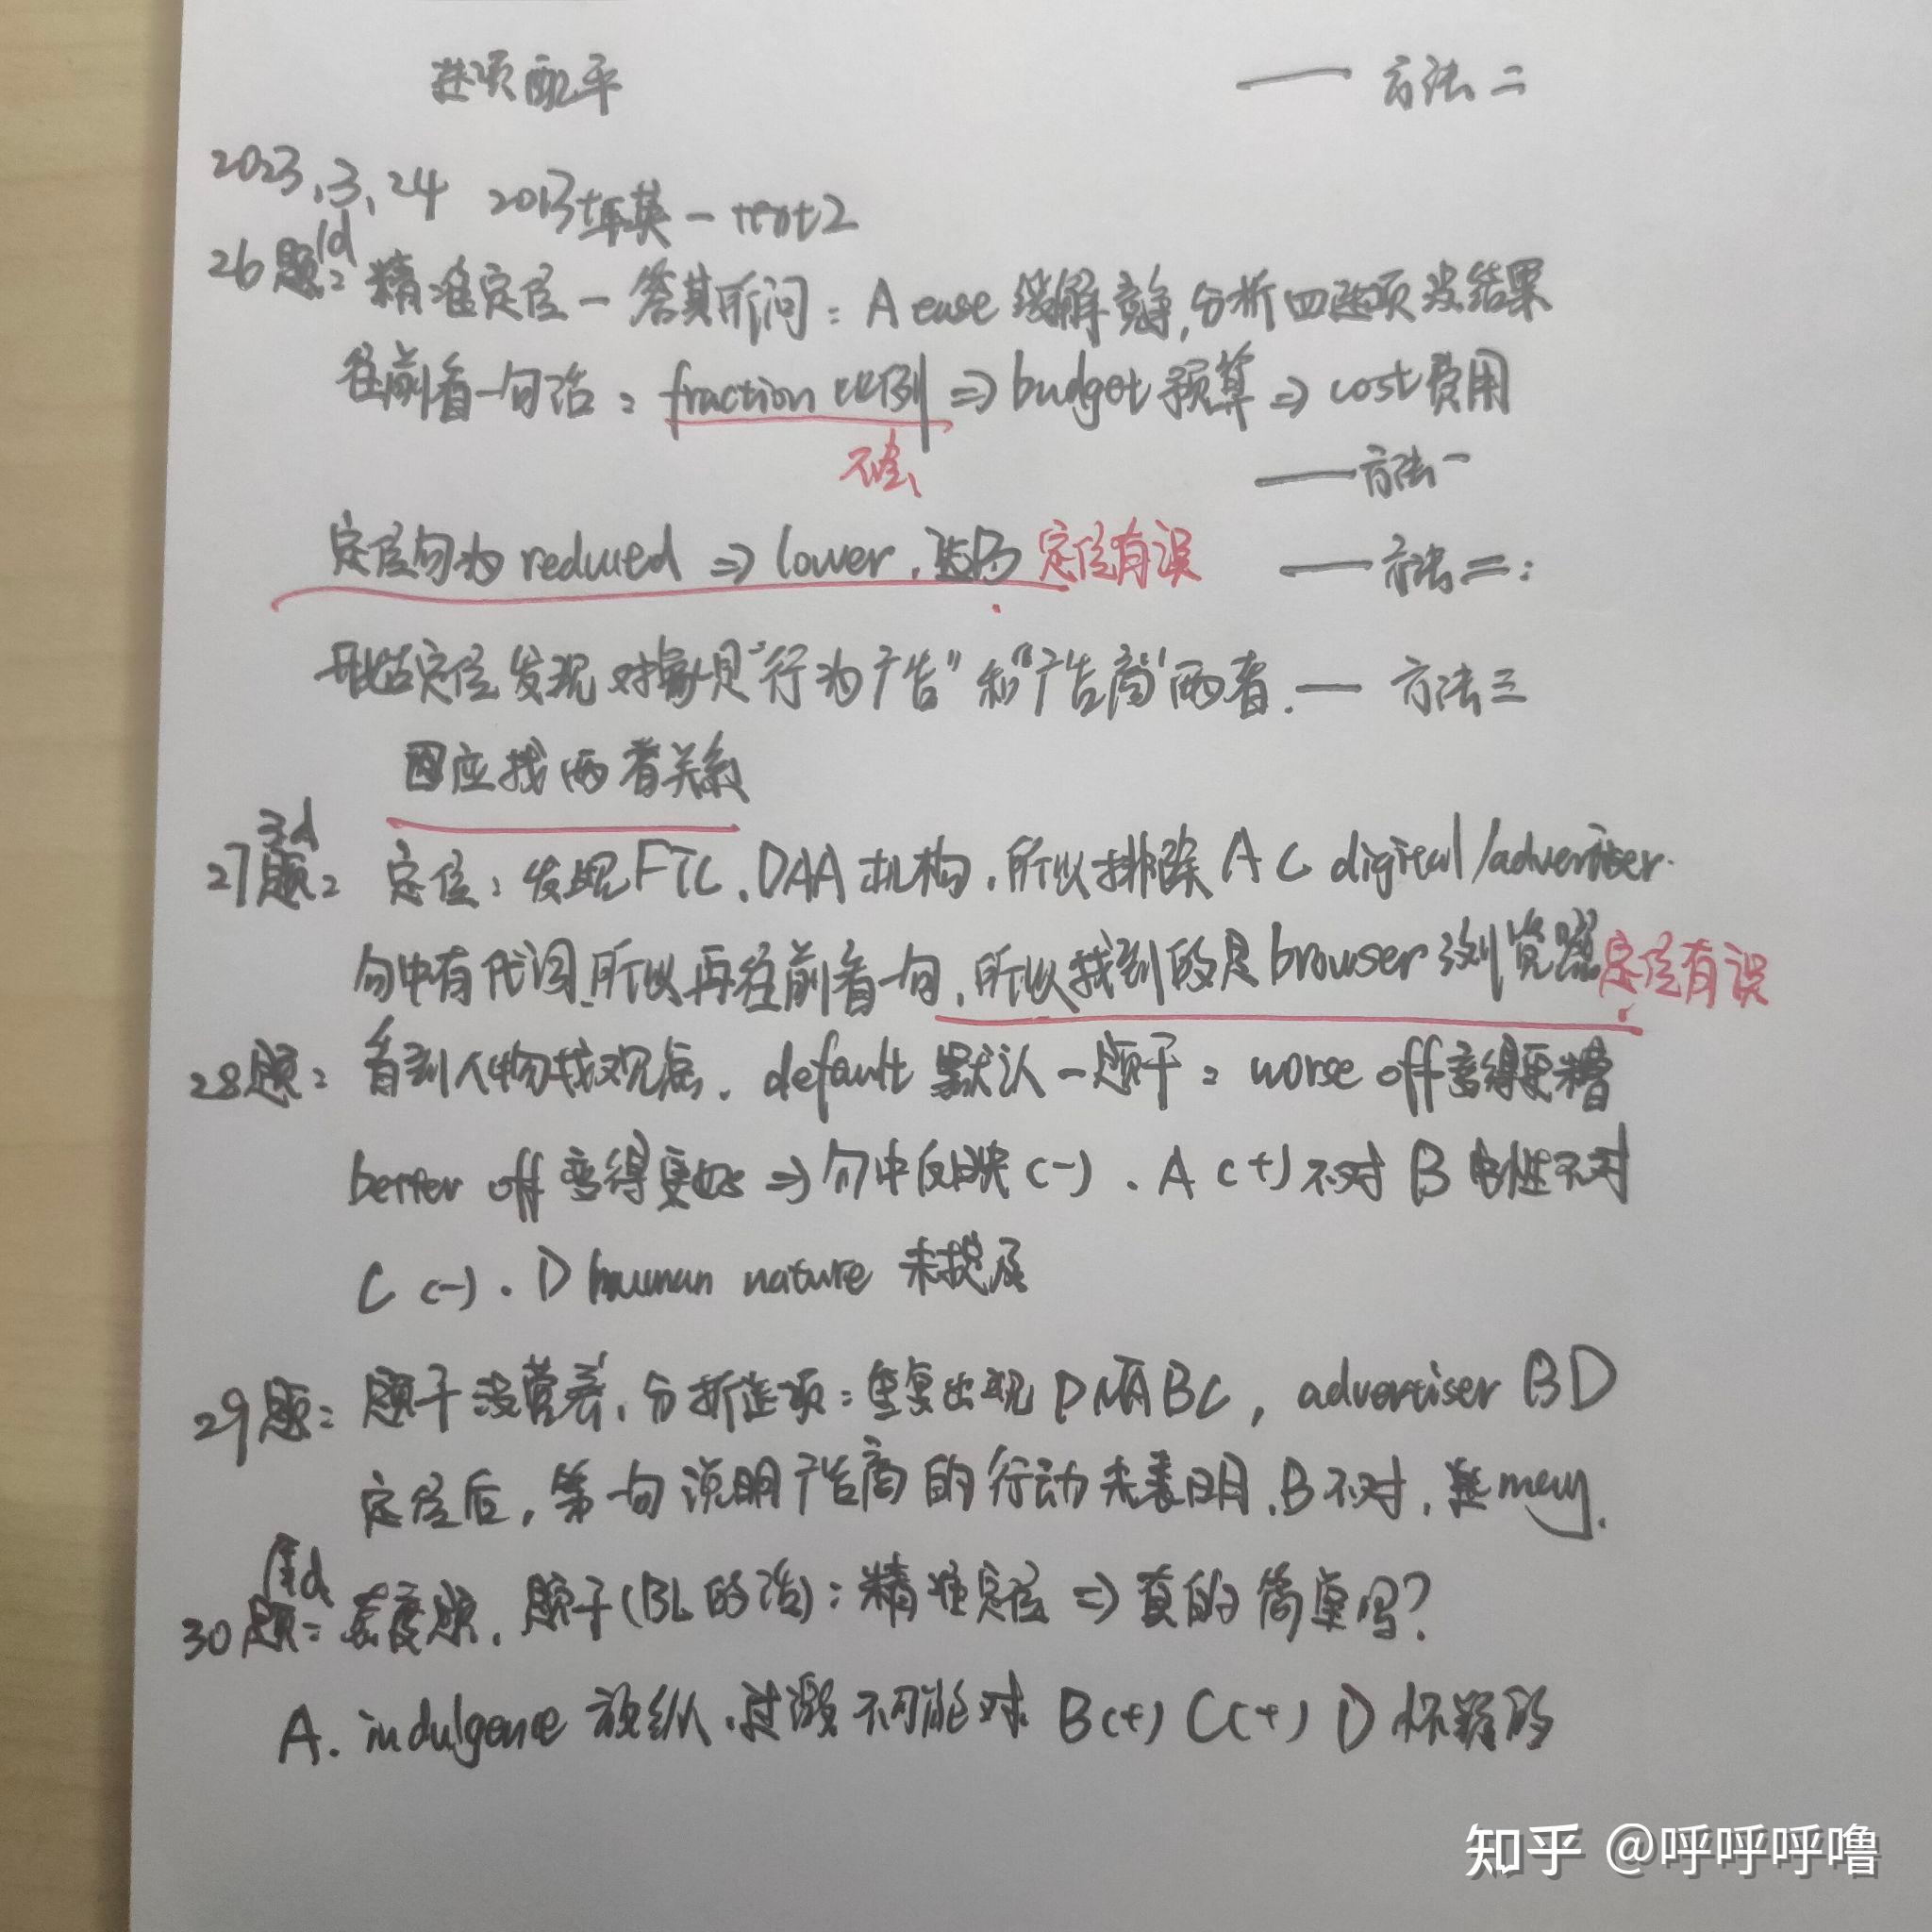 选项配平 —— 方法二
2023.3.24 2013年英一 text2
1d
26题: 精准定位-答其所问: A ease 缓解竞争,分析四选项没结果
往前看一句话: fraction 比例 => budget 预算 => cost 费用
—— 方法一
定位句为 reduced => lower. 选B 定位有误 —— 方法二:
定位发现对象是“行为广告”和“广告商”两者. — 方法三
因应找两者关系
3d
27题: 定位: 发现FTC.DAA机构.所以排除 A C digital/advertiser.
句中有代词,所以再往前看一句,所以找到的是 browser 浏览器 定位有误
28题: 看到人物找观点. default 默认-题干: worse off 变得更糟
better off 变得更好 => 句中反映 (-) . A (+) 不对 B 不对
C (-) . D human nature 未提及
29题: 题干没营养,分析选项: 重复出现 DNT ABC, advertiser BD
定位后, 第一句说明广告商的行动未表明.B不对, may.
30题: 态度题. 题干(BL的话): 精准定位 => 真的简单吗?
A. indulgence 放纵.过激不可能对 B(+) C(+) D 怀疑的
知乎 @呼呼呼噜